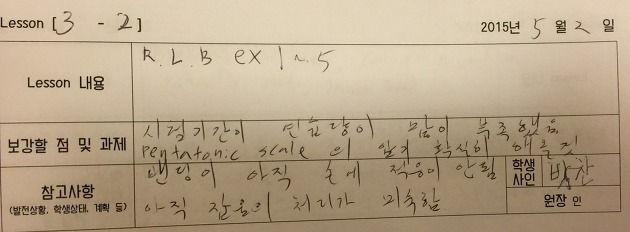 Lesson [3 - 2] 2015년 5 월 2 일
Lesson 내용 R.L.B ex 1~5
보강할 점 및 과제 시험기간이 연습량이 많이 부족했음
pentatonic scale 의 암기 확실히 해올것
참고사항 밴딩이 아직 손에 적응이 안됨 학생 사인 박찬
(발전상황, 학생상태, 계획 등) 아직 잡음의 처리가 미흡함 원장 인